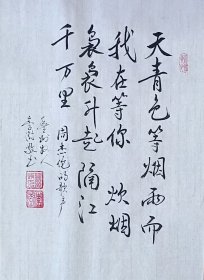 天青色等烟雨而
我在等你炊烟
袅袅升起隔江
千万里
周杰伦的歌声